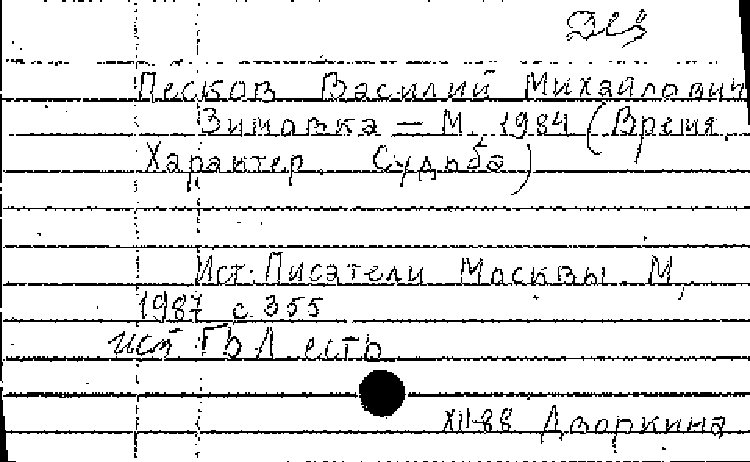 Песков Василий Михайлович
Зимовка — М, 1984 (Время.
Характер. Судьба)
Ист: Писатели Москвы. М,
1987 с 355
ГБЛ есть
XII-88 Дворкина